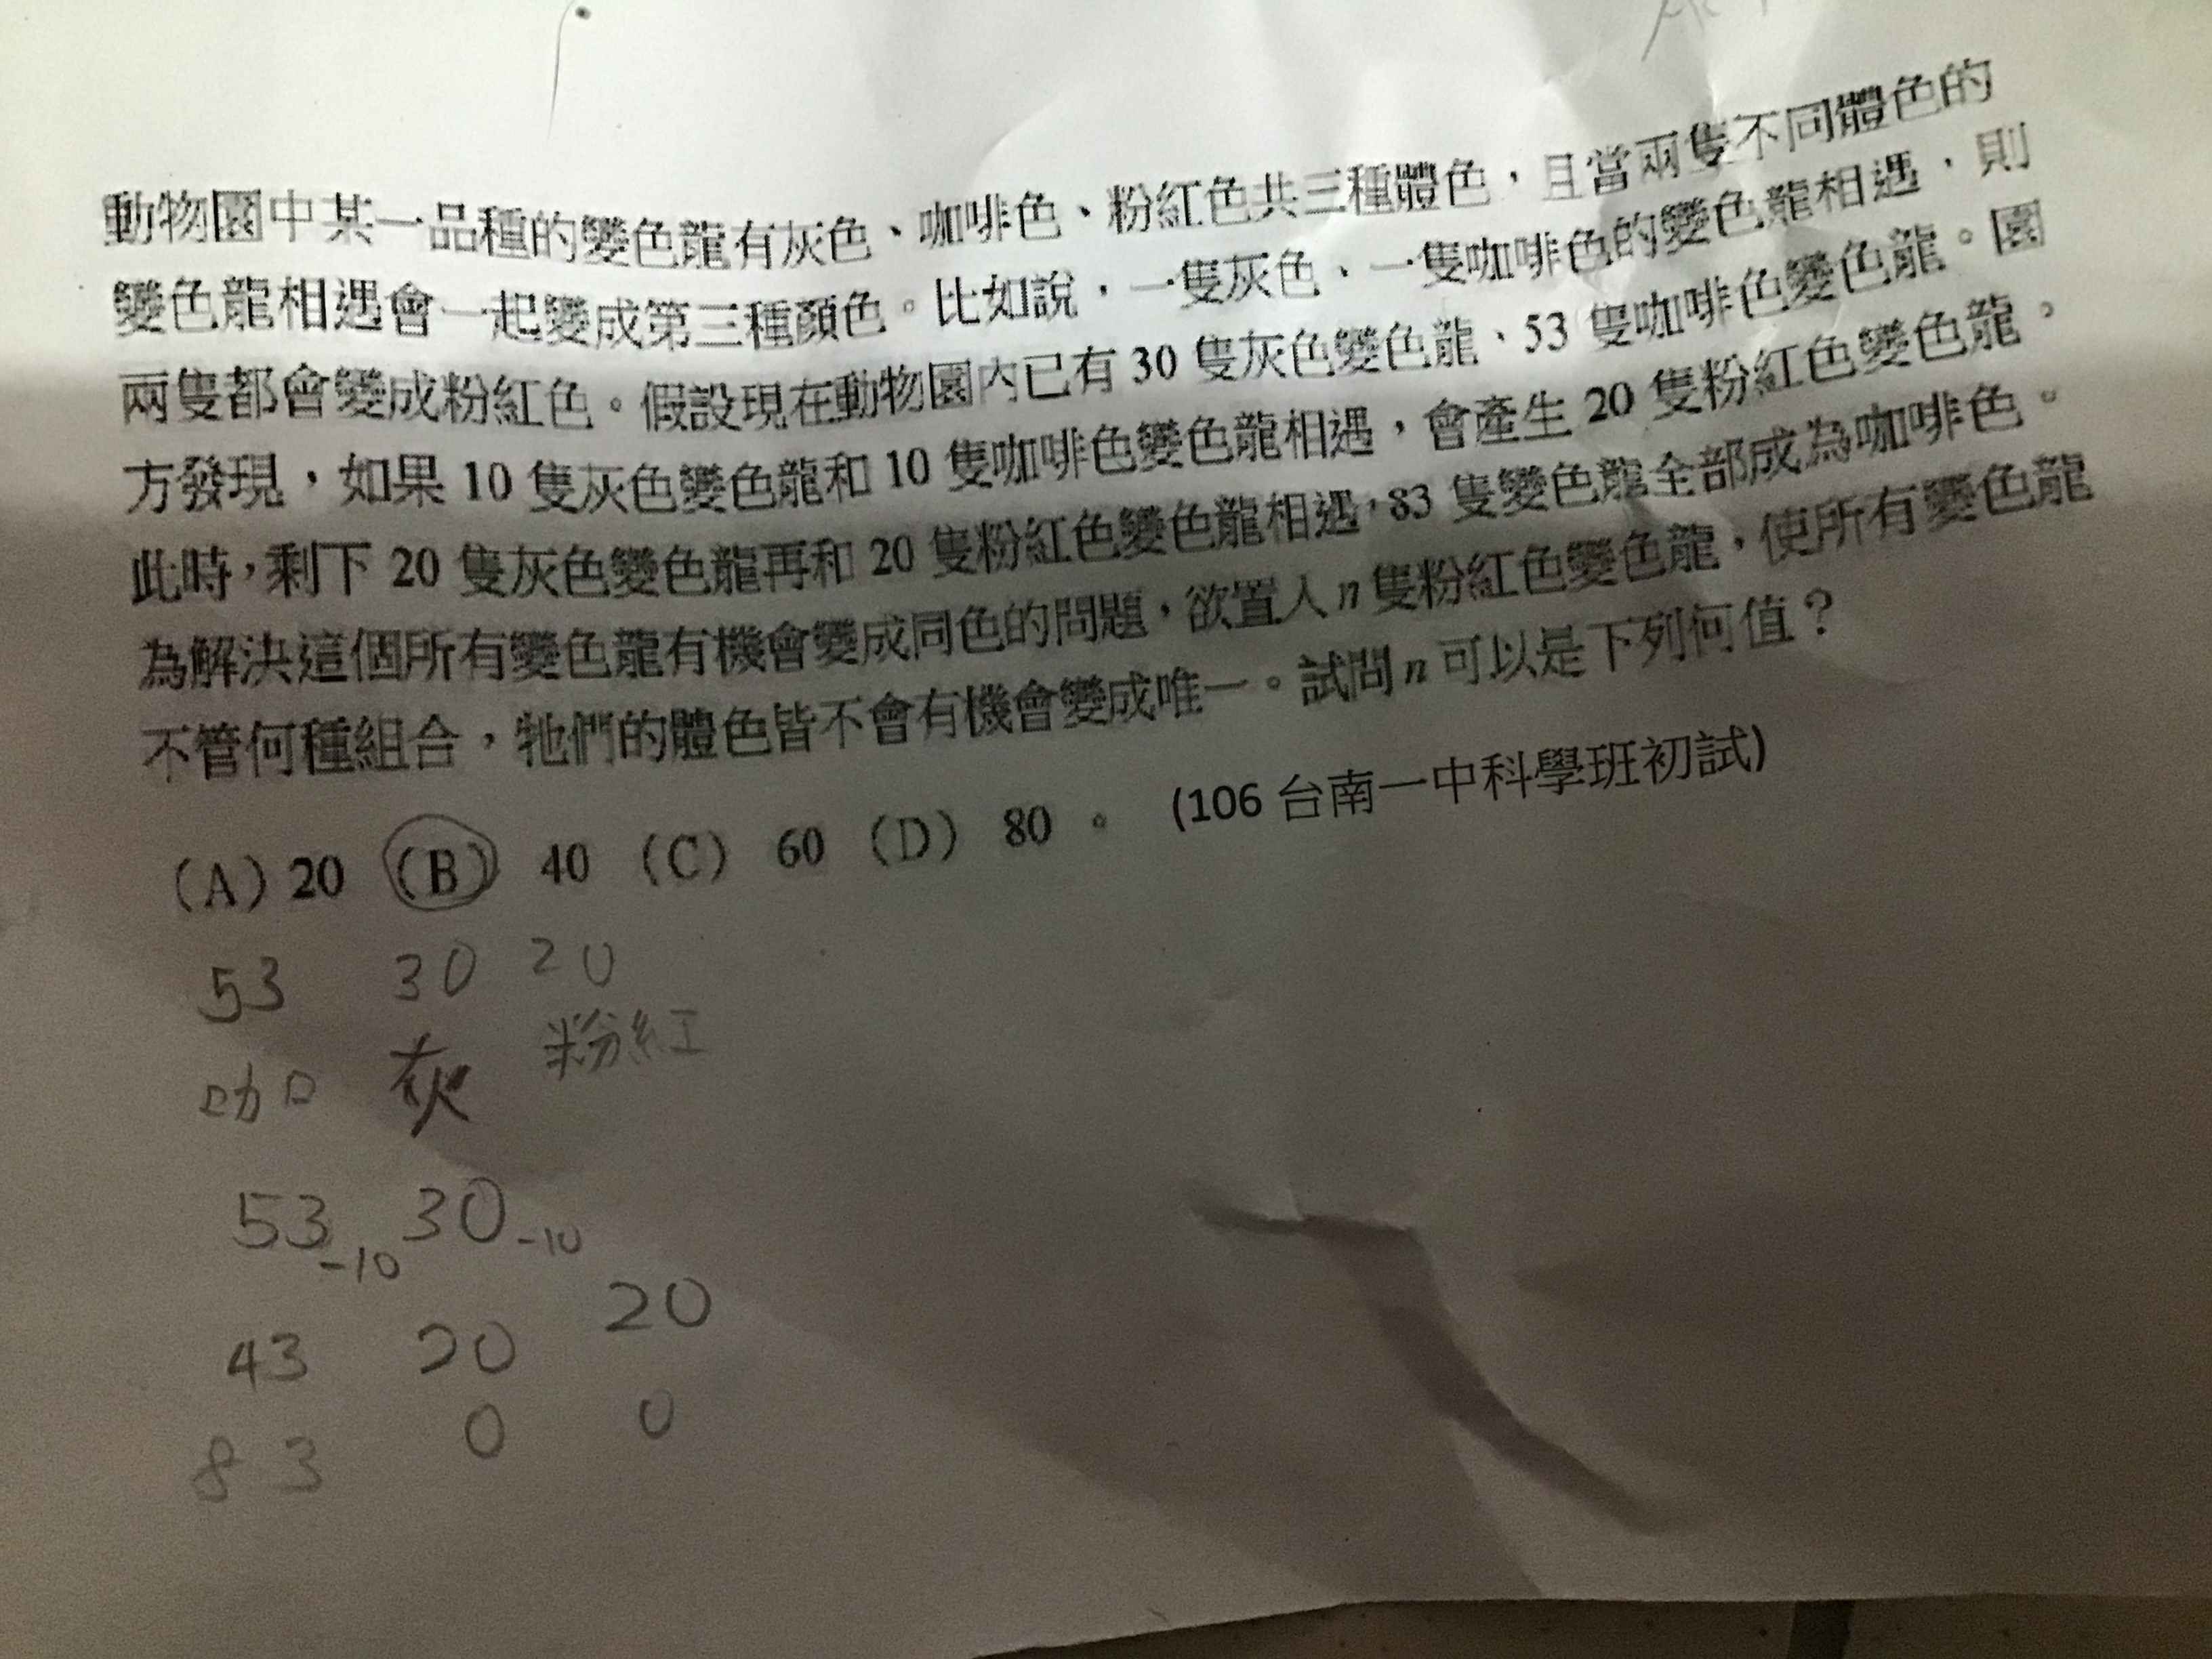 動物園中某一品種的變色龍有灰色、咖啡色、粉紅色共三種體色，且當兩隻不同體色的
變色龍相遇會一起變成第三種顏色。比如說，一隻灰色、一隻咖啡色的變色龍相遇，則
兩隻都會變成粉紅色。假設現在動物園內已有 30 隻灰色變色龍、53 隻咖啡色變色龍。園
方發現，如果 10 隻灰色變色龍和 10 隻咖啡色變色龍相遇，會產生 20 隻粉紅色變色龍。
此時，剩下 20 隻灰色變色龍再和 20 隻粉紅色變色龍相遇，83 隻變色龍全部成為咖啡色。
為解決這個所有變色龍有機會變成同色的問題，欲置入 n 隻粉紅色變色龍，使所有變色龍
不管何種組合，牠們的體色皆不會有機會變成唯一。試問 n 可以是下列何值？
（A）20 （B） 40 （C） 60 （D） 80 。 (106 台南一中科學班初試)
53 30 20
咖 灰 粉紅
53-10 30-10
43 20 20
83 0 0